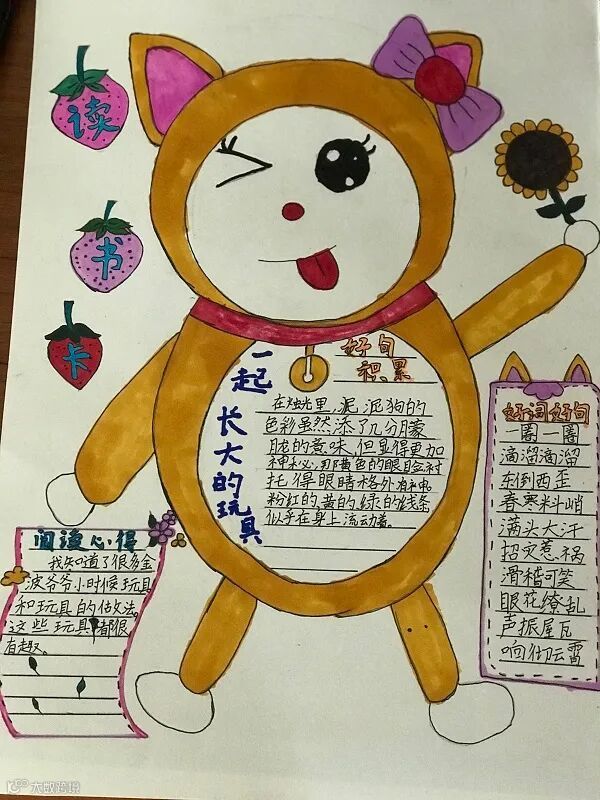 读
书
卡
一起长大的玩具
好句
积累
在烛光里，泥泥狗的
色彩虽然添了几分朦
胧的意味，但显得更加
神秘，黑色的眼目会衬
托得眼睛格外有神
粉红的、黄的、绿的线条
似乎在身上流动着。
阅读心得
我知道了很多金
波爷爷小时候玩具
和玩具的做法，
这些玩具都很
有趣。
好词好句
一圈一圈
滴溜滴溜
东倒西歪
春寒料峭
满头大汗
招灾惹祸
滑稽可笑
眼花缭乱
声振屋瓦
响彻云霄
大数跨境